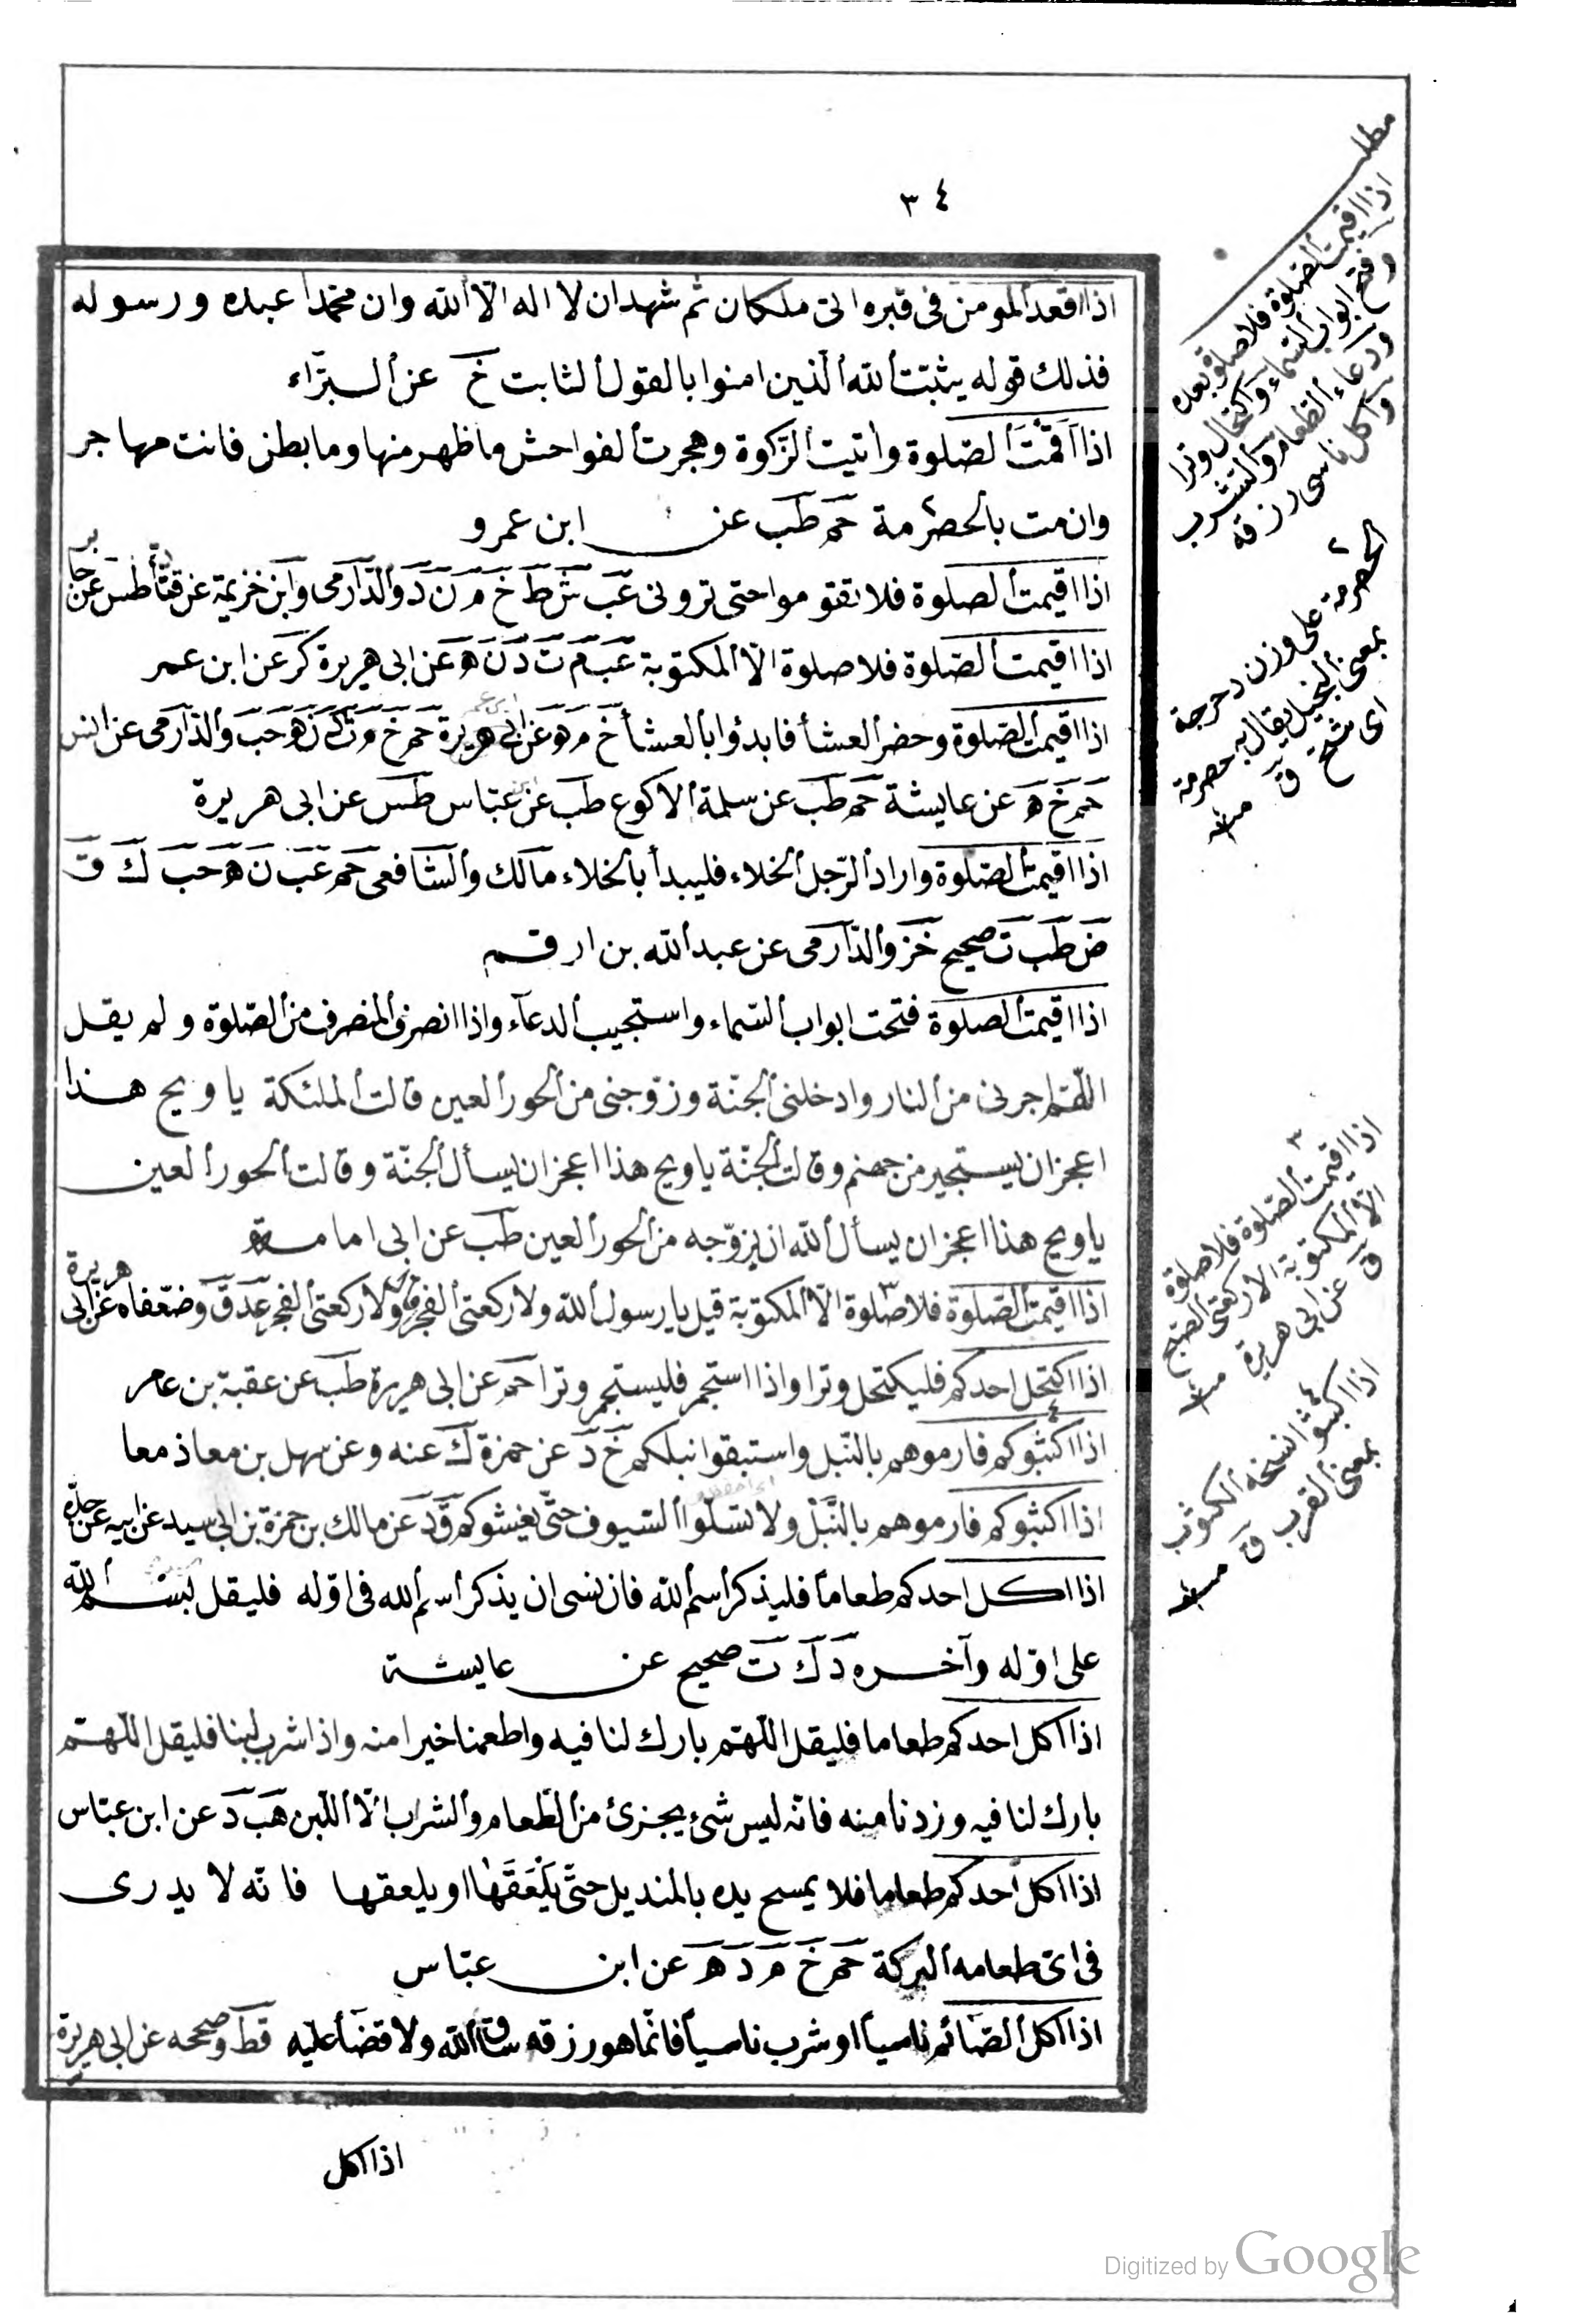 ٣٤
اذا اقعد المومن فى قبره اتى ملكان ثم شهد ان لا اله الا الله وان محمدا عبده ورسوله
فذلك قوله يثبت الله الذين امنوا بالقول الثابت خ عن البراء
اذا اقمت الصلوة واتيت الزكوة وهجرت الفواحش ما ظهر منها وما بطن فانت مهاجر
وان مت بالحضرمة حم طب عن ابن عمرو
اذا اقيمت الصلوة فلا تقوموا حتى ترونى عب ش ط خ م ن د والدارمى وابن خزيمة عن طس عن جابر
اذا اقيمت الصلوة فلا صلوة الا المكتوبة عب م ت د ن ه عن ابى هريرة كر عن ابن عمر
اذا اقيمت الصلوة وحضر العشأ فابدؤا بالعشأ خ م ه عن ابن عمر حم خ م ت ن ه حب والدارمى عن انس
حم خ ه عن عايشة حم طب عن سلمة الاكوع طب عن ابن عباس طس عن ابى هريرة
اذا اقيمت الصلوة واراد الرجل الخلاء فليبدأ بالخلاء مالك والشافعى حم عب ن ه حب ك ق
ض طب ت صحيح خز والدارمى عن عبد الله بن ارقم
اذا اقيمت الصلوة فتحت ابواب السماء واستجيب الدعآء واذا انصرف المنصرف من الصلوة ولم يقل
اللهم اجرنى من النار وادخلنى الجنة وزوجنى من الحور العين قالت الملئكة يا ويح هذا
اعجز ان يستجير من جهنم وقالت الجنة يا ويح هذا اعجز ان يسأل الجنة وقالت الحور العين
يا ويح هذا اعجز ان يسأل الله ان يزوجه من الحور العين طب عن ابى امامة
اذا اقيمت الصلوة فلا صلوة الا المكتوبة قيل يا رسول الله ولا ركعتى الفجر قال ولا ركعتى الفجر عد ق وضعفاه عن ابى هريرة
اذا اكتحل احدكم فليكتحل وترا واذا استجمر فليستجمر وترا حم عن ابى هريرة طب عن عقبة بن عامر
اذا اكثبوكم فارموهم بالنبل واستبقوا نبلكم خ د عن حمزة ك عنه وعن سهل بن معاذ معا
اذا اكثبوكم فارموهم بالنبل ولا تسلوا السيوف حتى يغشوكم ق د عن مالك بن حمزة بن ابى سيد عن ابيه عن جده
اذا اكل احدكم طعاما فليذكر اسم الله فان نسى ان يذكر اسم الله فى اوله فليقل بسم الله
على اوله وآخره د ك ت صحيح عن عايشة
اذا اكل احدكم طعاما فليقل اللهم بارك لنا فيه واطعمنا خيرا منه واذا شرب لبنا فليقل اللهم
بارك لنا فيه وزدنا منه فانه ليس شئ يجزئ من الطعام والشراب الا اللبن هب د عن ابن عباس
اذا اكل احدكم طعاما فلا يمسح يده بالمنديل حتى يلعقها او يلعقها فانه لا يدرى
فى اى طعامه البركة حم خ م د ه عن ابن عباس
اذا اكل الصائم ناسيا او شرب ناسيا فانما هو رزق ساقه الله ولا قضأ عليه قط وصححه عن ابى هريرة
اذا اكل
مطلب
اذا اقيمت الصلوة فلا صلوة بعده
وفتح ابواب السماء واكتحال وترا
ودعاء الطعام والشرب
واكل ناسى رزقه
الحضرمة على وزن دحرجة
بمعنى يقال به حضرمة
اى شح ق منه
٣
اذا اقيمت الصلوة فلا صلوة
الا المكتوبة الا ركعتى الصبح
ق عن ابى هريرة منه
٤
اذا اكثبوا نسخه الكثوب
بمعنى القرب ق منه
Digitized by Google